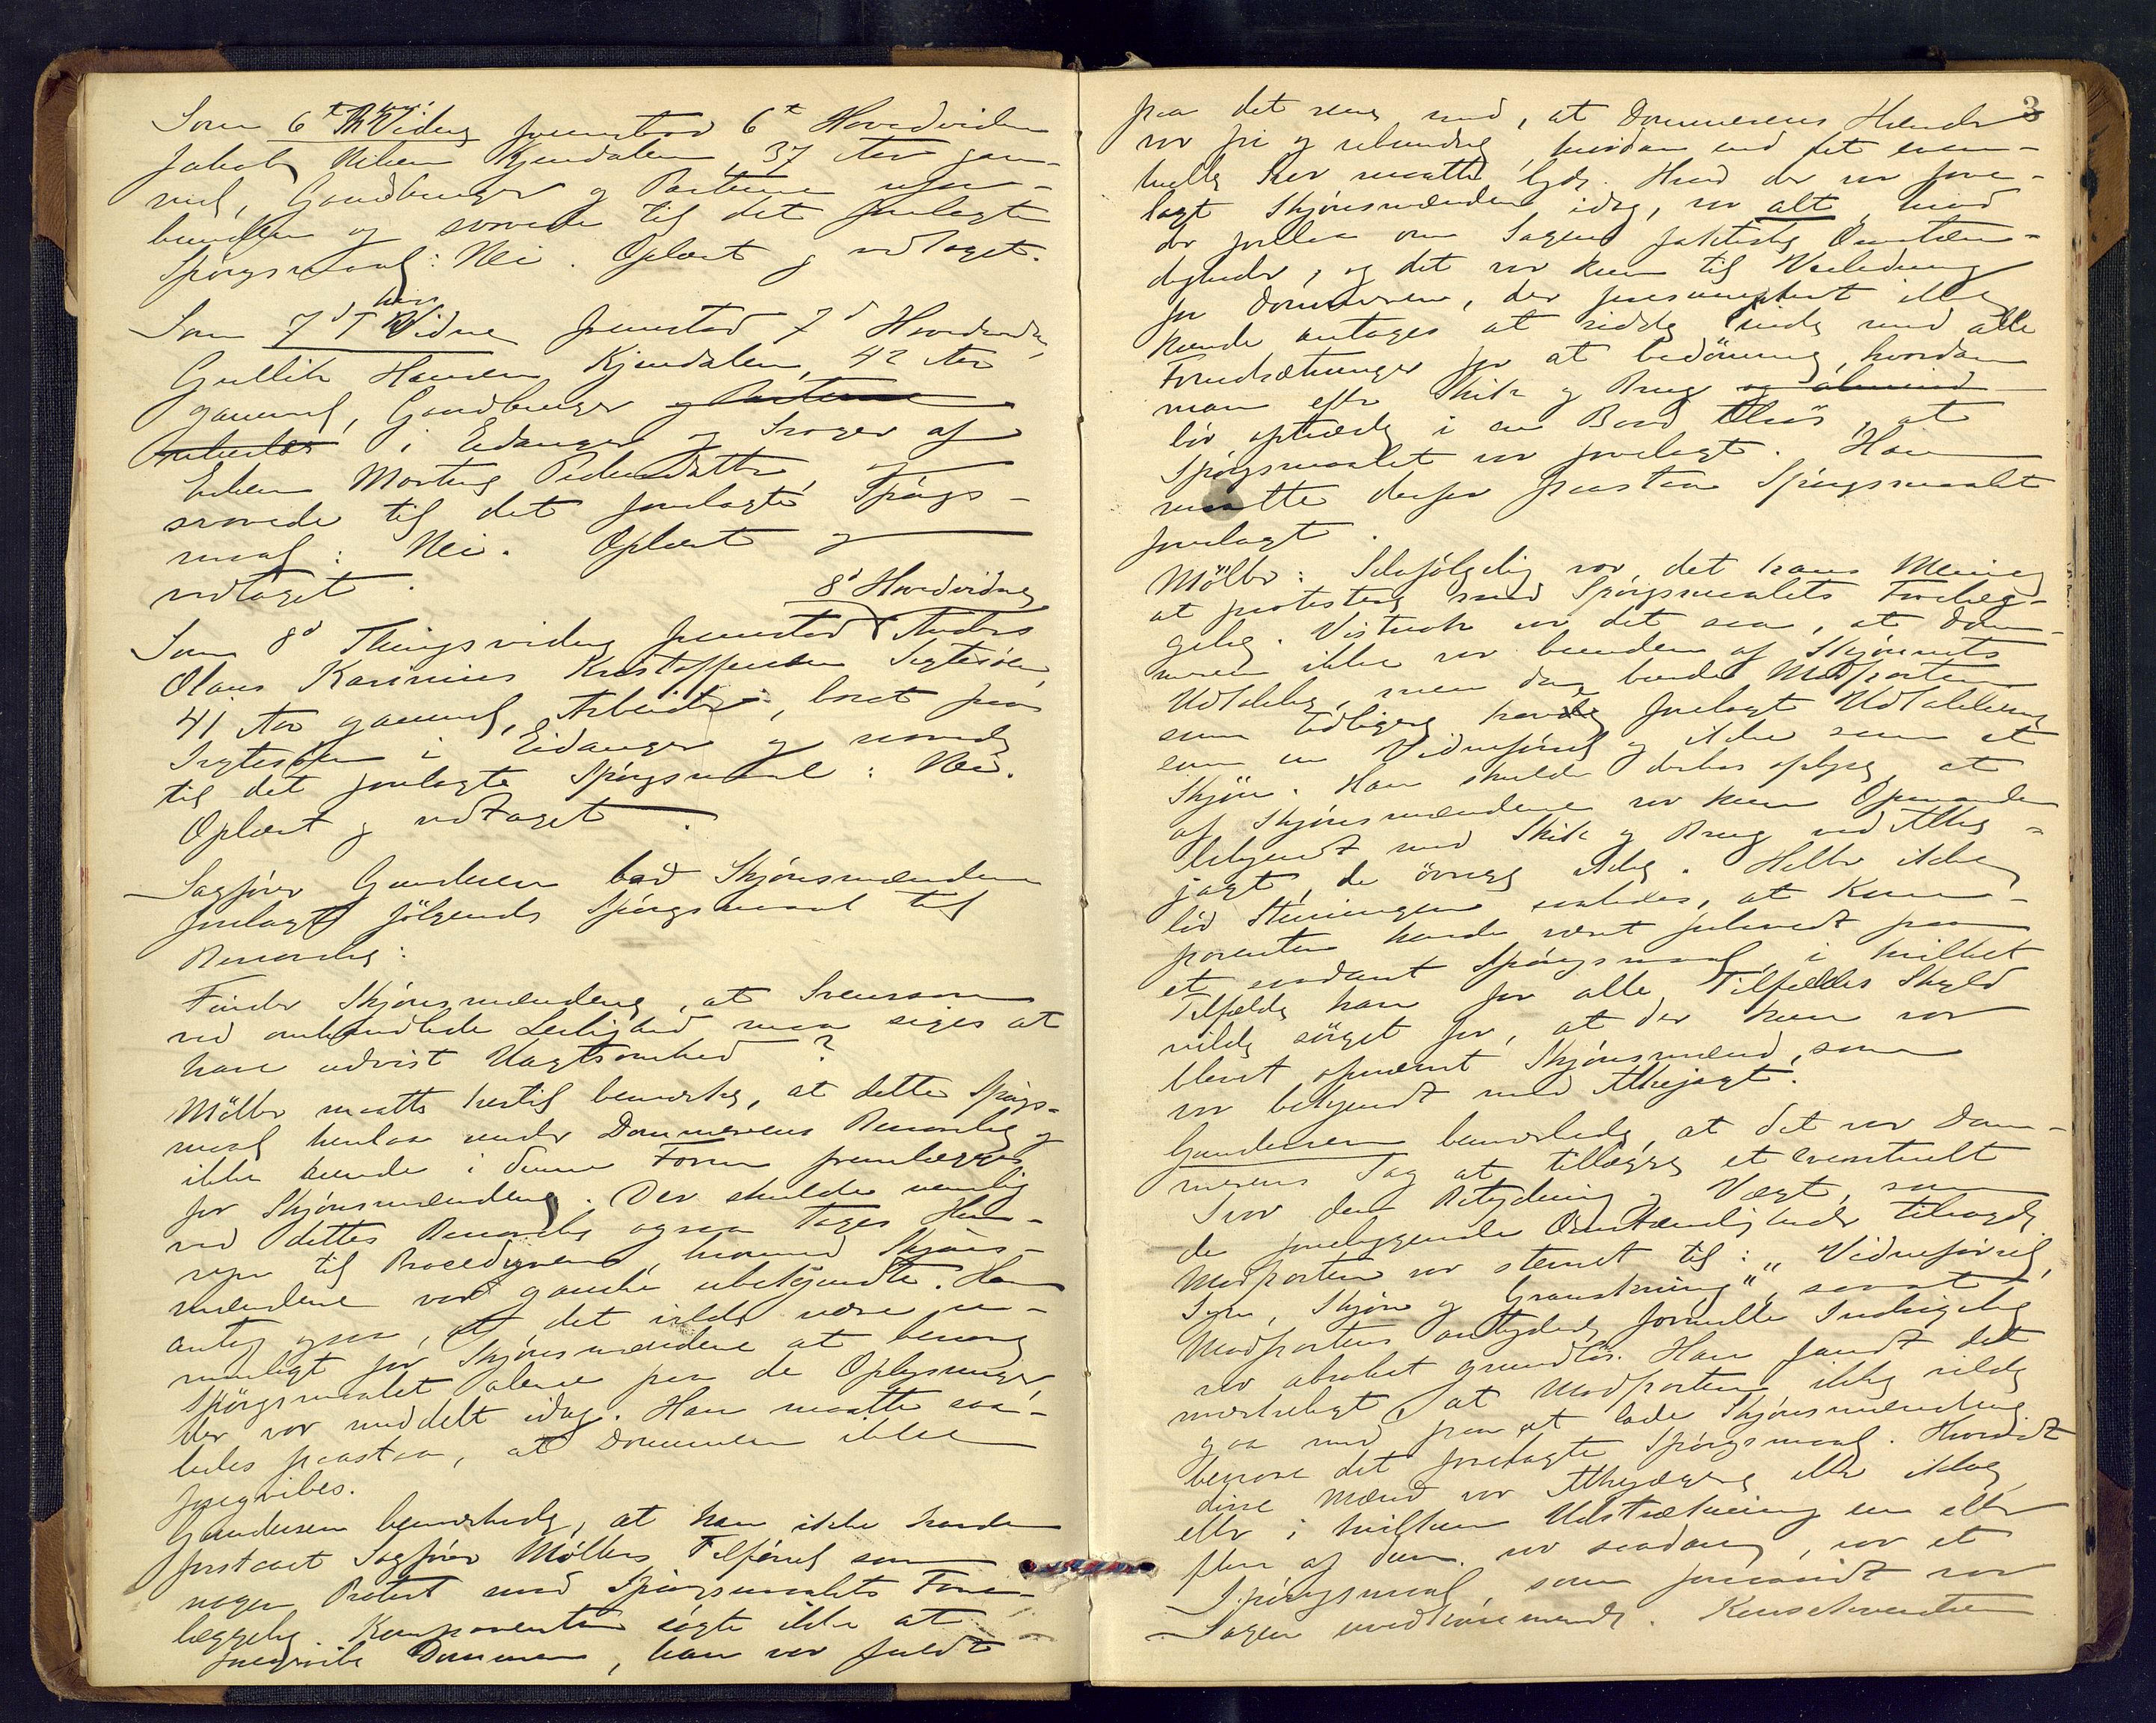 Som 6t Th Vidne fremstod 6t Hovedvidne
Jakob Nilsen Kjendalen, 37 Aar gam-
mel, Gaardbruger og Parterne
og svarede til det forelagte
Spörgsmaal: Nei. Oplæst og vedtaget.
Som 7d T Vidne fremstod 7d Hovedvidne
Gullik Hansen Kjendalen, 42 Aar
gammel, Gaardbruger og Parterne
i Eidanger og
Enken Marthe Pedersdatter, og
svarede til det forelagte Spörgs-
maal: Nei. Oplæst og
vedtaget.
8d Hovedvidne
Som 8d Thingsvidne fremstod Anders
Olaus Karinius Kristoffersen Sigtesöen,
41 Aar gammel, Arbeider, boende paa
Sigtesöen i Eidanger og svarede
til det forelagte Spörgsmaal: Nei.
Oplæst og vedtaget.
Sagförer Gundersen bad Skjönsmændene
forelagt fölgende Spörgsmaal til
Besvarelse:
Finder Skjönsmændene, at Svensson
ved omhandlede Leilighed maa siges at
have udvist Uagtsomhed?
Möller maatte hertil bemærke, at dette Spörgs-
maal henlaa under Dommerens Besvarelse og
ikke kunde i denne Form fremlægges
for Skjönsmændene. Der skulde nemlig
ved dettes Besvarelse ogsaa tages Hen-
syn til Procedyren, hvormed Skjöns-
mændene var ganske ubekjendte. Han
antog ogsaa, at det vilde være u-
muligt for Skjönsmændene at besvare
Spörgsmaalet alene paa de Oplysninger,
der var meddelt idag. Han maatte saa-
ledes paastaa, at Dommen ikke
foregribes.
Gundersen bemærkede, at han ikke havde
forstaaet Sagförer Möllers Tilförsel som
nogen Protest mod Spörgsmaalets Fore-
læggelse. Komparenten sögte ikke at
foregribe Dommen, han var fuldt
3
paa det rene med, at Dommerens Hænder
var fri og ubundne, hvordan end det even-
tuelle Svar maatte lyde. Hvad der var fore-
lagt Skjönsmændene idag, var alt, hvad
der forelaa om Sagens faktiske Omstæn-
digheder, og det var kun til Veiledning
for Dommeren, der præsumptivt ikke
kunde antages at sidde inde med alle
Forudsætninger for at bedömme, hvordan
man efter Skik og Brug og almind
bör optræde i en Baad tilsös, at
Spörgsmaalet var forelagt. Han
maatte derfor paastaa Spörgsmaalet
forelagt.
Möller: Selvfölgelig var det hans Mening
at protestere mod Spörgsmaalets Forelæg-
gelse. Vistnok var det saa, at Dom-
meren ikke var bunden af Skjönnets
Udtalelse, men dog burde Modparten
som tidligere havde forelagt Udtalelsen
som en Vidneförsel og ikke som et
Skjön. Han skulde derhos oplyse, at
af Skjönsmændene var kun Opmanden
bekjendt med Skik og Brug ved Alke-
jagt, de övrige ikke. Heller ikke
löd Stævningen saaledes, at Kom-
parenten havde været forberedt paa
et saadant Spörgsmaal, i hvilket
Tilfælde han for alle Tilfældes Skyld
vilde sörget for, at der kun var
blevet opnævnt Skjönsmænd, som
var bekjendt med Alkejagt.
Gundersen bemærkede, at det var Dom-
merens Sag at tillægge et eventuelt
Svar den Betydning og Vægt, som
de foreliggende Omstændigheder tilsagde.
Modparten var stevnet til: "Vidneförsel,
Syn, Skjön og Granskning", saaat
Modpartens antydede formelle Indsigelse
var absolut grundlös. Han fandt det
mærkeligt, at Modparten ikke vilde
gaa med paa at lade Skjönsmændene
besvare det forelagte Spörgsmaal. Hvorvidt
disse Mænd var Alkejægere eller ikke,
eller i hvilken Udstrækning en eller
flere af dem var saadanne, var et
Spörgsmaal, som forsaavidt var
Sagen uvedkommende. Konsekventsen